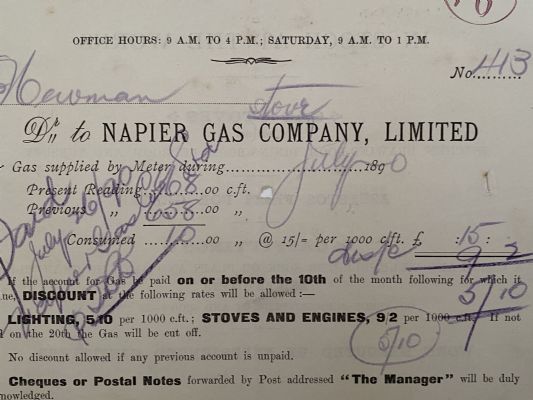 OFFICE HOURS: 9 A.M. TO 4 P.M.; SATURDAY, 9 A.M. TO 1 P.M.
No. 413
Newman
stove
Dr. to NAPIER GAS COMPANY, LIMITED
Gas supplied by Meter during July 1890
Present Reading 68 00 c.ft.
Previous „ 658 00 „
Consumed 10 00 „ @ 15/= per 1000 c.ft. £ :15:
disc/t 9 2
5/10
If the account for Gas be paid on or before the 10th of the month following for which it
ne, DISCOUNT at the following rates will be allowed:—
LIGHTING, 5/10 per 1000 c.ft.; STOVES AND ENGINES, 9/2 per 1000 c.ft. If not
d on the 20th the Gas will be cut off.
5/10
No discount allowed if any previous account is unpaid.
Cheques or Postal Notes forwarded by Post addressed "The Manager" will be duly
nowledged.
Paid
July
Napier Gas